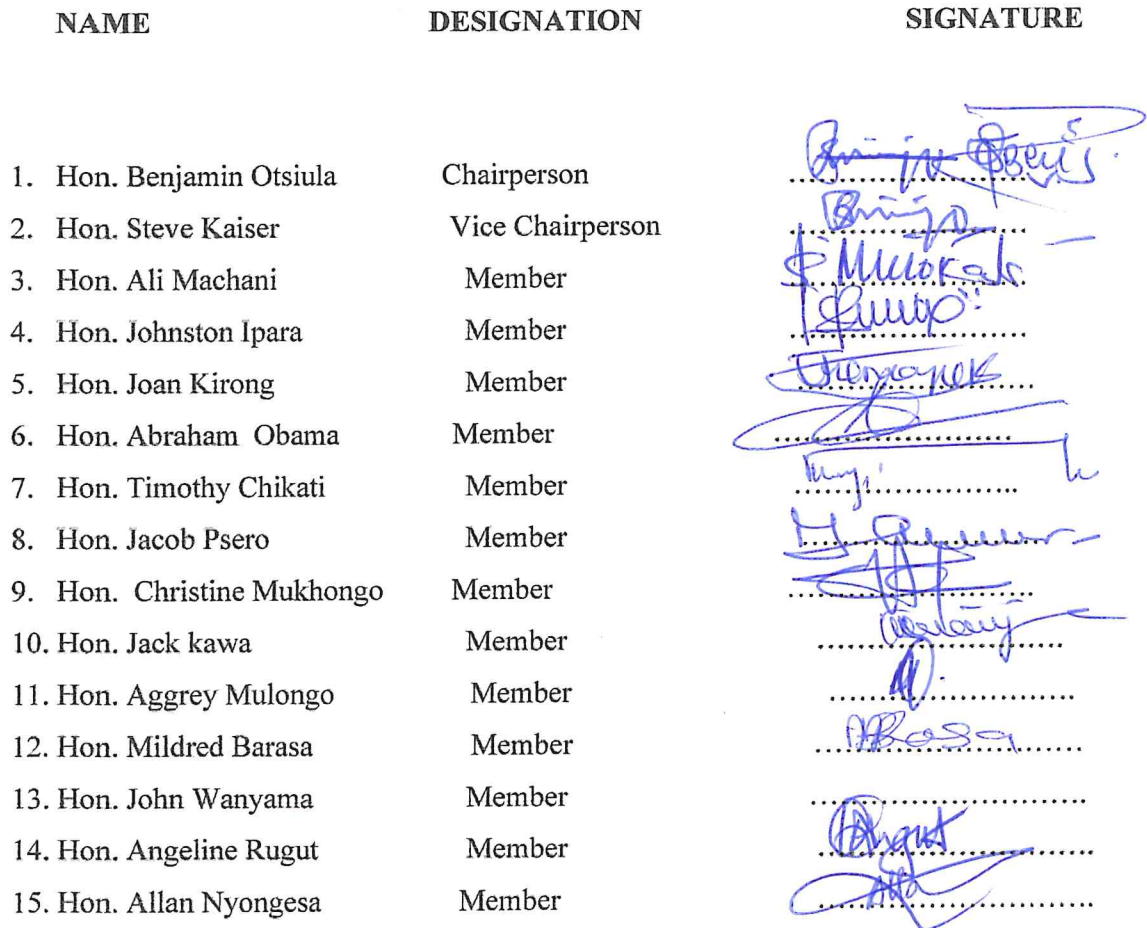 NAME DESIGNATION SIGNATURE
1. Hon. Benjamin Otsiula Chairperson ..............................
2. Hon. Steve Kaiser Vice Chairperson ..............................
3. Hon. Ali Machani Member ..............................
4. Hon. Johnston Ipara Member ..............................
5. Hon. Joan Kirong Member ..............................
6. Hon. Abraham Obama Member ..............................
7. Hon. Timothy Chikati Member ..............................
8. Hon. Jacob Psero Member ..............................
9. Hon. Christine Mukhongo Member ..............................
10. Hon. Jack kawa Member ..............................
11. Hon. Aggrey Mulongo Member ..............................
12. Hon. Mildred Barasa Member ..............................
13. Hon. John Wanyama Member ..............................
14. Hon. Angeline Rugut Member ..............................
15. Hon. Allan Nyongesa Member ..............................